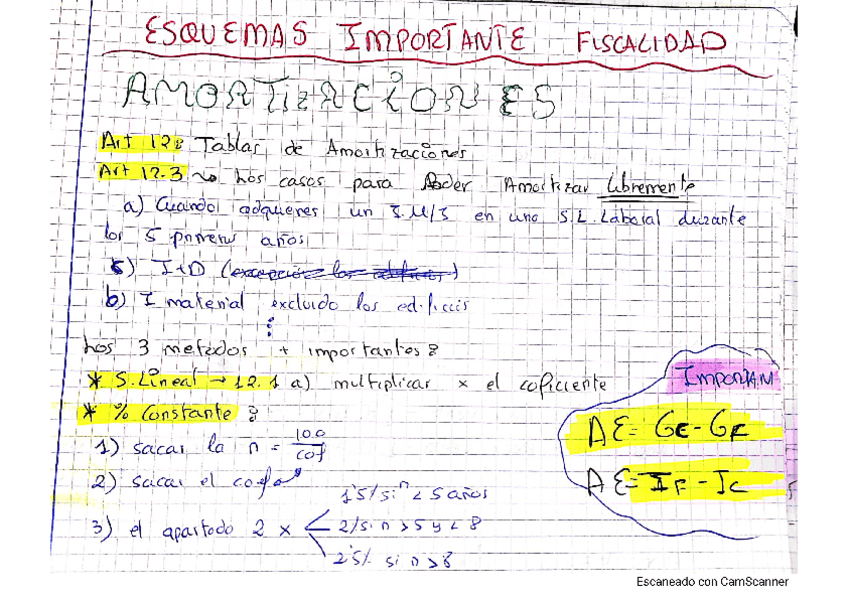 ESQUEMAS IMPORTANTE FISCALIDAD
AMORTIZACIONES
Art 12: Tablas de Amortizaciones
Art 12.3 → Los casos para Poder Amortizar Libremente
a) Cuando adquieres un I.M/I en una S.L. Laboral durante
los 5 primeros años
I+D (excepción los edificios)
b) I material excluido los edificios
Los 3 metodos + importantes:
* S. Lineal → 12.1 a) multiplicar x el coficiente
* % Constante:
1) sacar la n = 100/cof
2) sacar el cof
3) el apartado 2 x
1'5/ si n < 5 años
2/ si n > 5 y < 8
2'5/ si n > 8
IMPORTAN
AE = GC - GF
AE = IF - IC
Escaneado con CamScanner